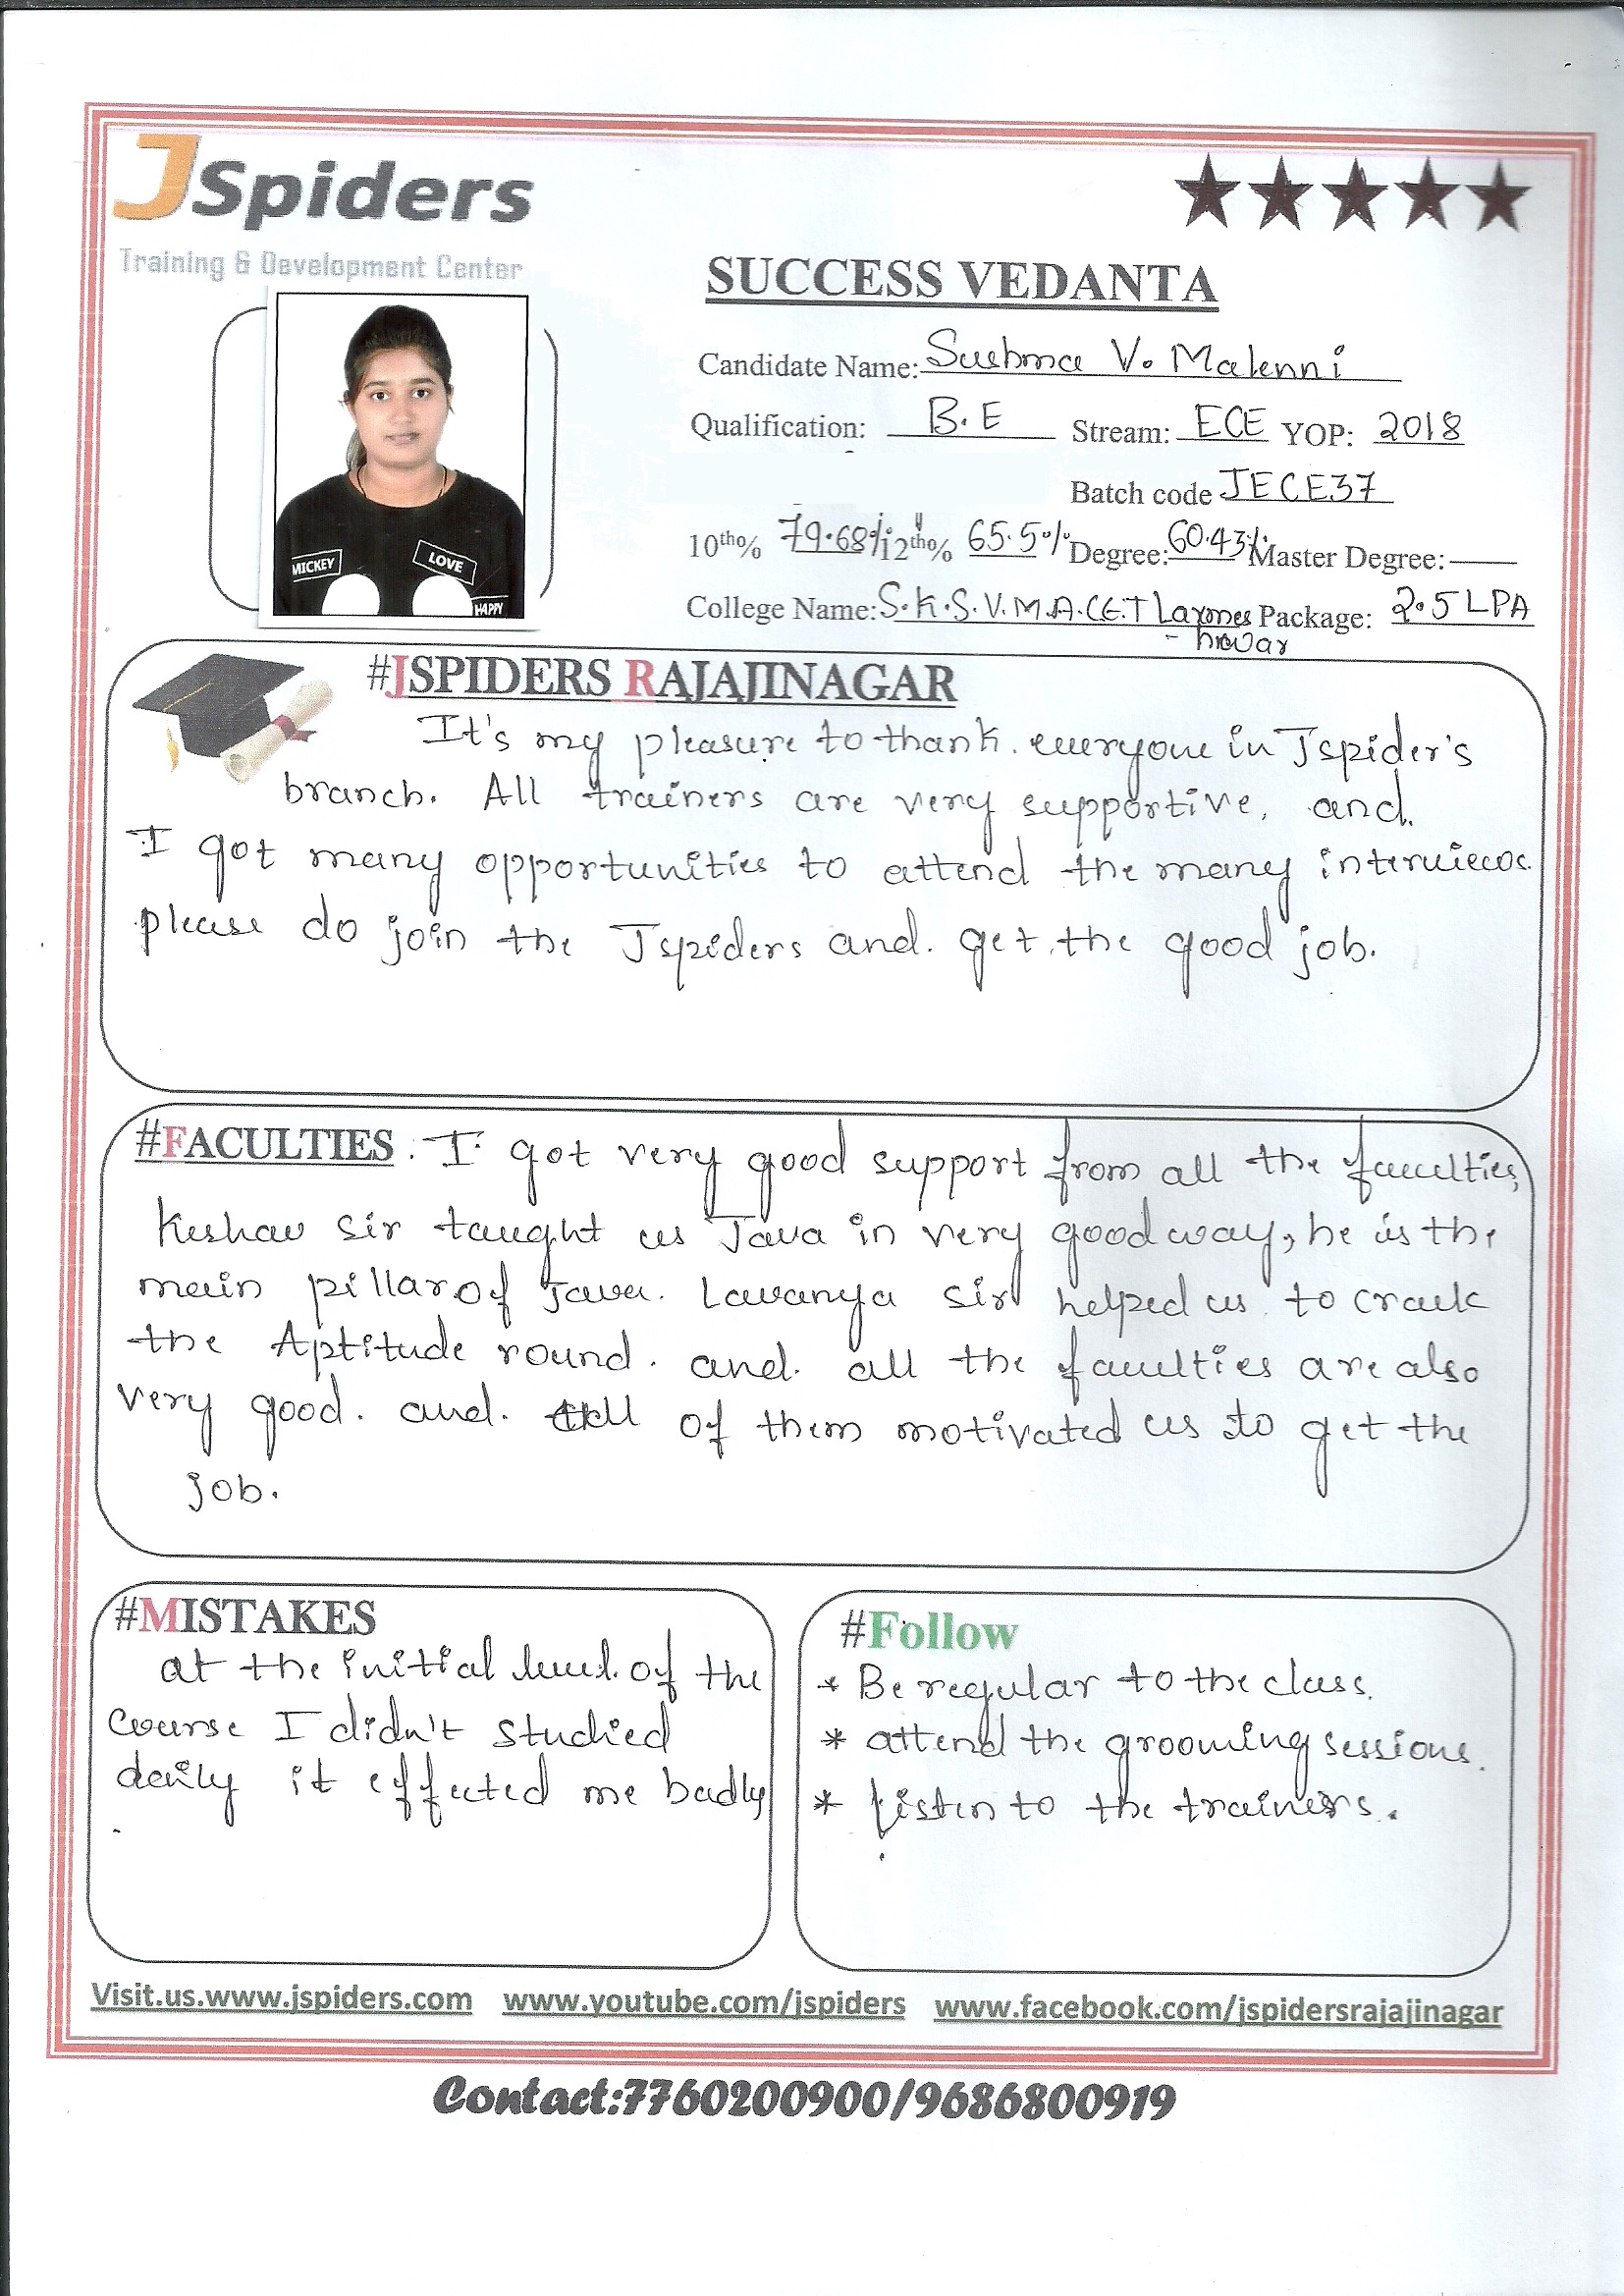 JSpiders
Training & Development Center
SUCCESS VEDANTA
Candidate Name: Sushma V. Malenni
Qualification: B.E Stream: ECE YOP: 2018
Batch code JECE37
10th% 79.68% 12th% 65.5% Degree: 60.43% Master Degree: —
College Name: S.K.S.V.M.A.C.E.T Laxmes Package: 2.5 LPA
- hwar
MICKEY
LOVE
HAPPY
#JSPIDERS RAJAJINAGAR
It's my pleasure to thank. everyone in Jspider's
branch. All trainers are very supportive, and.
I got many opportunities to attend the many interviews.
please do join the Jspiders and. get the good job.
#FACULTIES. I got very good support from all the faculties,
Keshav sir taught us Java in very good way, he is the
main pillar of Java. Lavanya sir helped us to crack
the Aptitude round. and. all the faculties are also
very good. and. all of them motivated us to get the
job.
#MISTAKES
at the initial level of the
course I didn't studied
daily it effected me badly
.
#Follow
* Be regular to the class.
* attend the grooming sessions.
* listen to the trainers.
Visit.us.www.jspiders.com www.youtube.com/jspiders www.facebook.com/jspidersrajajinagar
Contact:7760200900/9686800919